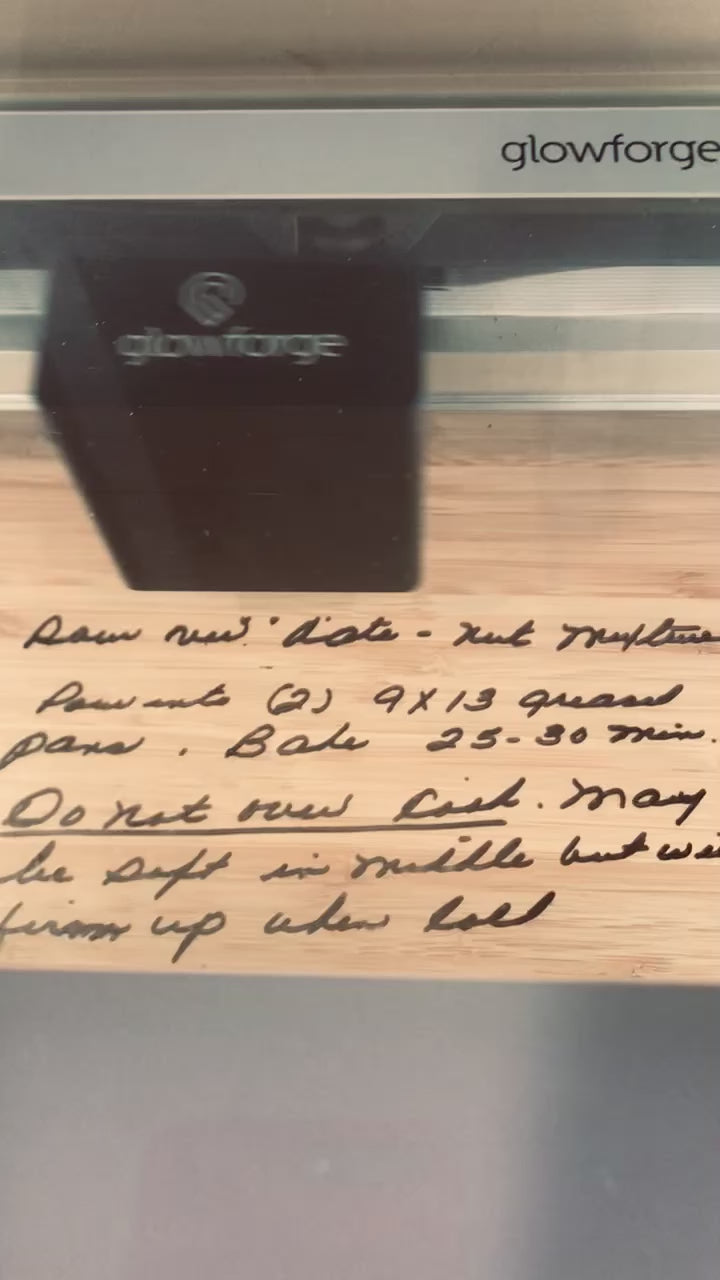 glowforge
glowforge
Pour over date - nut mixture
Pour into (2) 9X13 greased
pans. Bake 25-30 min.
Do not over cook. May
be soft in middle but wi
firm up when cold